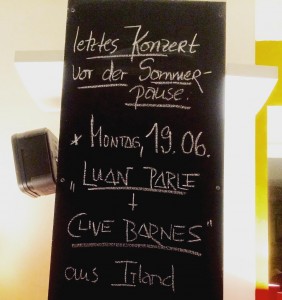 letztes Konzert
vor der Sommer-
pause.
* Montag, 19.06.
"Luan Parle
+
Clive Barnes"
aus Irland